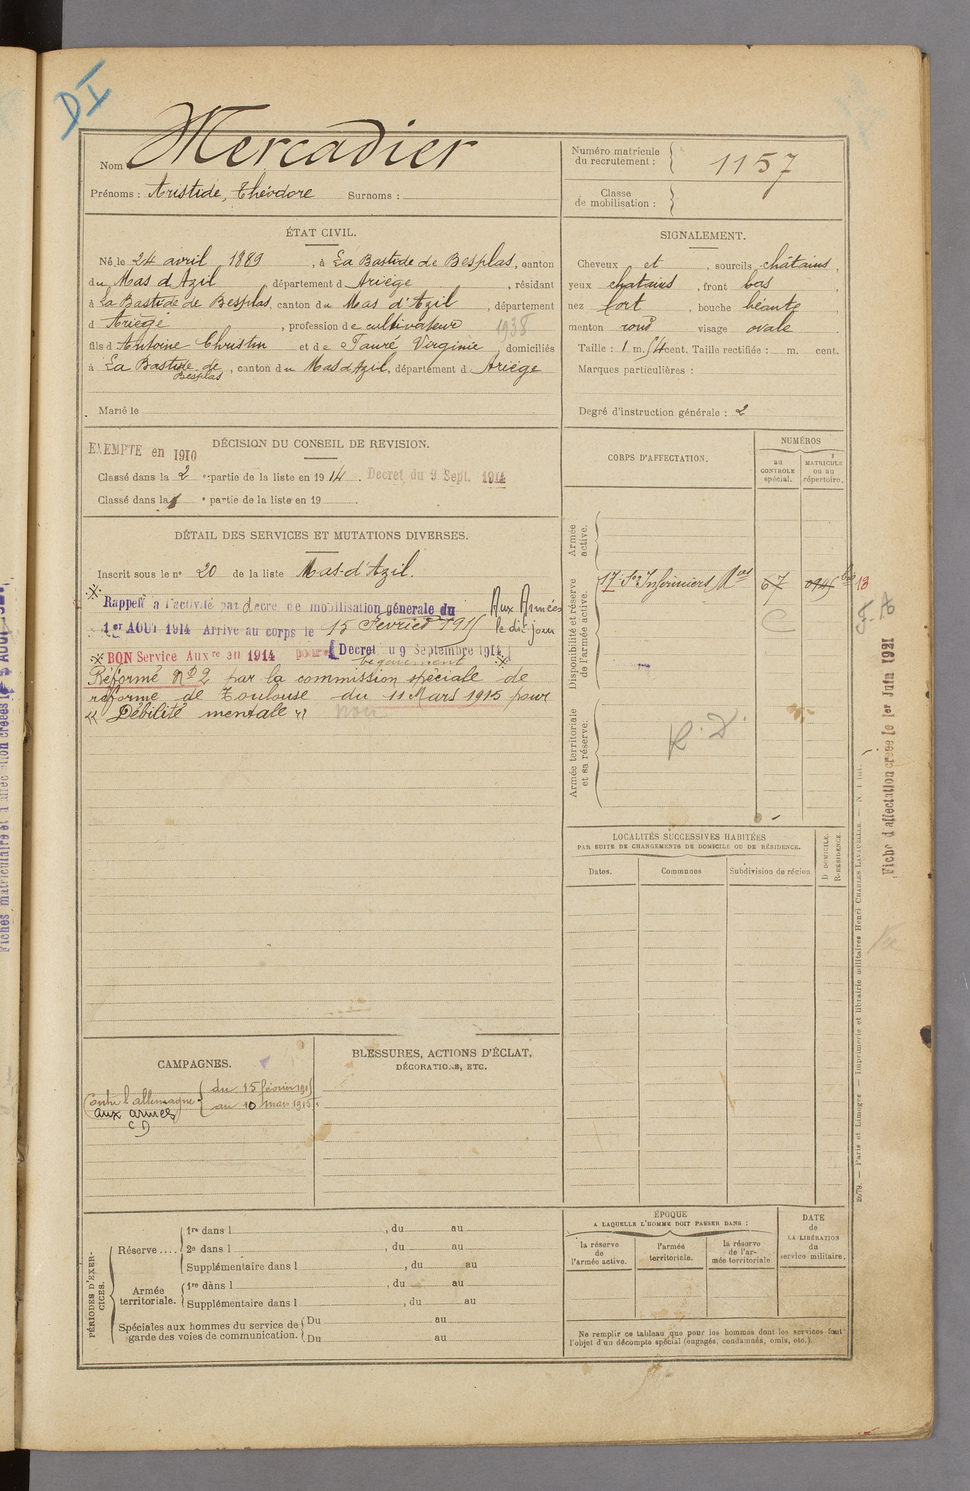 DI
Nom Mercadier
Prénoms : Aristide, Théodore Surnoms :
Numéro matricule du recrutement : 1157
Classe de mobilisation :
ÉTAT CIVIL.
Né le 24 avril 1889, à La Bastide de Besplas, canton
du Mas d'Azil, département d Ariège, résidant
à La Bastide de Besplas, canton du Mas d'Azil, département
d Ariège, profession de cultivateur
1938
fils d Antoine Christin et de Fauré Virginie, domiciliés
à La Bastide de Besplas, canton du Mas d'Azil, département d Ariège
Marié le
SIGNALEMENT.
Cheveux et, sourcils châtains,
yeux chatains, front bas
nez fort, bouche béante
menton rond visage ovale
Taille : 1 m. 54 cent. Taille rectifiée : m. cent.
Marques particulières :
Degré d'instruction générale : 2
EXEMPTÉ en 1910
DÉCISION DU CONSEIL DE REVISION.
Classé dans la 2 e partie de la liste en 1914. Decret du 9 Sept. 1914
Classé dans la e partie de la liste en 19
DÉTAIL DES SERVICES ET MUTATIONS DIVERSES.
Inscrit sous le n° 20 de la liste Mas-d'Azil.
Rappelé à l'activité par decret de mobilisation générale du Aux Armées
1er AOUT 1914 Arrivé au corps le 15 Février 1915 le dit jour
BON Service Auxre en 1914 pour Decret du 9 Septembre 1914
bégaiement
Réformé N° 2 par la commission spéciale de
réforme de Toulouse du 11 Mars 1915 pour
« Débilité mentale »
CORPS D'AFFECTATION.
NUMÉROS
au CONTROLE spécial.
MATRICULE ou au répertoire.
Armée active.
Disponibilité et réserve de l'armée active.
17e Son Infirmiers Mres 67
13
Armée territoriale et sa réserve.
R. D.
Fiche d'affectation créée le 1er Juin 1921
LOCALITÉS SUCCESSIVES HABITÉES
PAR SUITE DE CHANGEMENTS DE DOMICILE OU DE RÉSIDENCE.
Dates. Communes Subdivision de région.
D. DOMICILE. R. RÉSIDENCE.
CAMPAGNES.
Contre l'allemagne du 15 février 1915
aux armées au 10 mars 1915
CD
BLESSURES, ACTIONS D'ÉCLAT,
DÉCORATIONS, ETC.
PÉRIODES D'EXERCICES.
Réserve .... 1re dans l , du au
2e dans l , du au
Supplémentaire dans l , du au
Armée territoriale. 1re dans l , du au
Supplémentaire dans l , du au
Spéciales aux hommes du service de garde des voies de communication. Du au
Du au
ÉPOQUE
A LAQUELLE L'HOMME DOIT PASSER DANS :
la réserve de l'armée active.
l'armée territoriale.
la réserve de l'armée territoriale
DATE de LA LIBÉRATION du service militaire.
Ne remplir ce tableau que pour les hommes dont les services font
l'objet d'un décompte spécial (engagés, condamnés, omis, etc.).
2679. — Paris et Limoges — Imprimerie et librairie militaires Henri CHARLES-LAVAUZELLE.